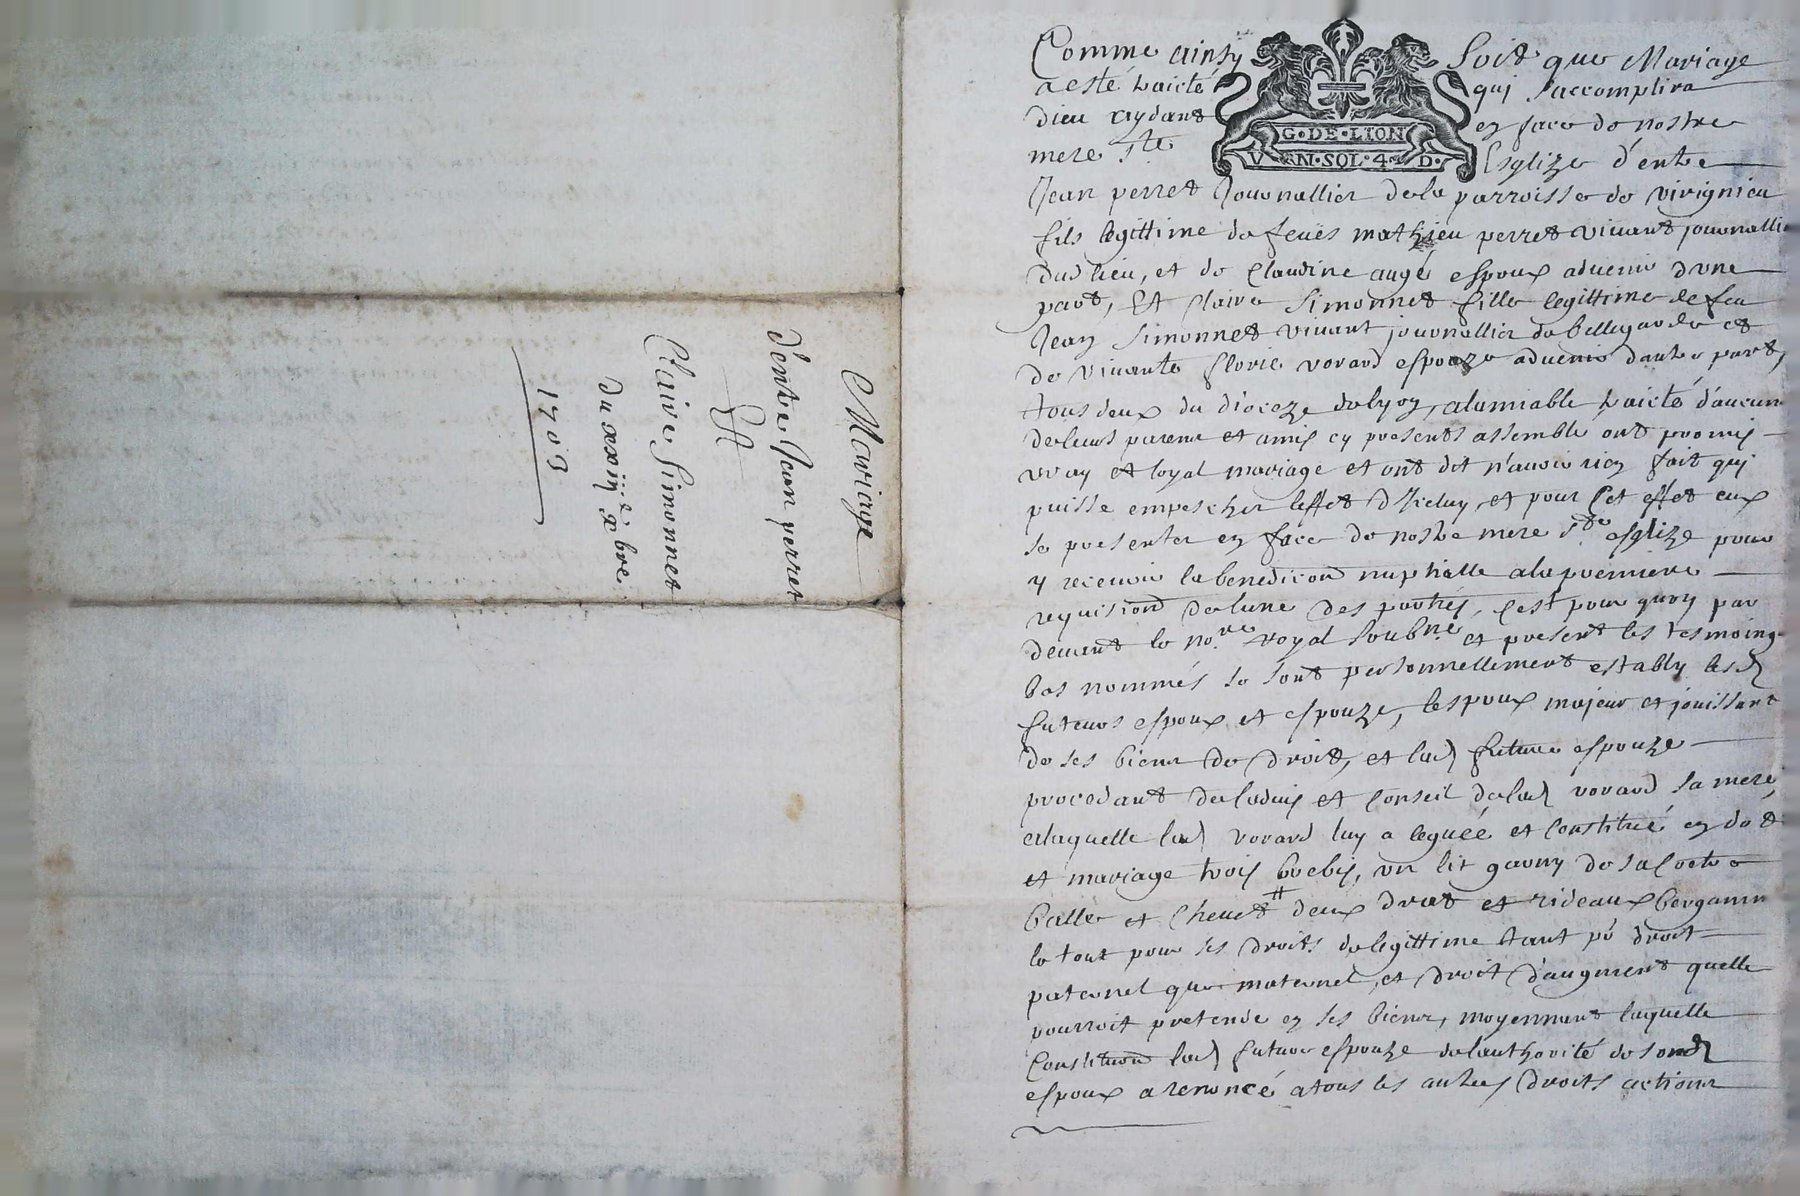 Mariage
d'entre Jean perret
Et
Claire Simonnet
du xxiij.e xbre
1703
Comme ainsy soit que Mariage
a esté traicté qui s'accomplira
dieu aydant en face de nostre
mere s.te Esglize d'entre
G·DE·LION
V N·SOL·4 D·
Jean perret Journallier de la parroisse de virignieu
fils legittime de feues mathieu perret vivant journallie
dud lieu, et de Claudine augé espoux advenir d'une
part, Et Claire Simonnet fille legittime de feu
Jean Simonnet vivant journallier de bellegarde et
de vivante florie vorard espouze advenir d'autre part,
tous deux du dioceze de lyon, a lamiable traicté d'aucun
de leurs parens et amis cy presents assemble ont promis
vray et loyal mariage et ont dit n'avoir rien fait qui
puisse empescher leffet d'Iceluy, et pour Cet effet eux
se presenter en face de nostre mere s.te esglize pour
y recevoir la benediction nuptialle a la premiere
requisition de lune des parties, C'est pourquoy par
devant le no.re royal soubné et present les tesmoings
bas nommés se sont personnellement estably lesd
futeurs espoux et espouze, lespoux majeur et jouissant
de ses biens de droit, et lad future espouze
procedant de ladvis et Conseil de lad vorard sa mere,
a laquelle lad vorard luy a leguée et Constitué en dot
et mariage trois brebis, un lit garny de sa Coetre
balle et Chevet deux drat et rideaux bergamm
le tout pour ses droits de legittime tant po droit
paternel que maternel, et droit d'augment quelle
pourroit pretendre en ses biens, moyennant laquelle
Constitution lad future espouze de lauthorité de sond
espoux a renoncé a tous les autres droits actions